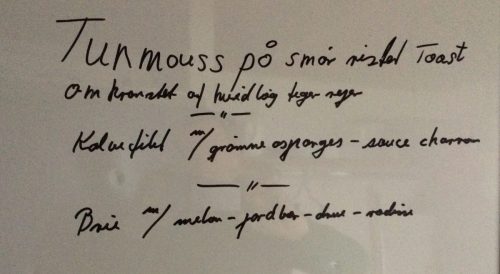 Tunmouss på smør ristet Toast
Omkranstet af hvidløg teger rejer
— " —
Kalvefilet m/ grønne asparges - sauce charron
— " —
Brie m/ melon - jordbær - drue - radise